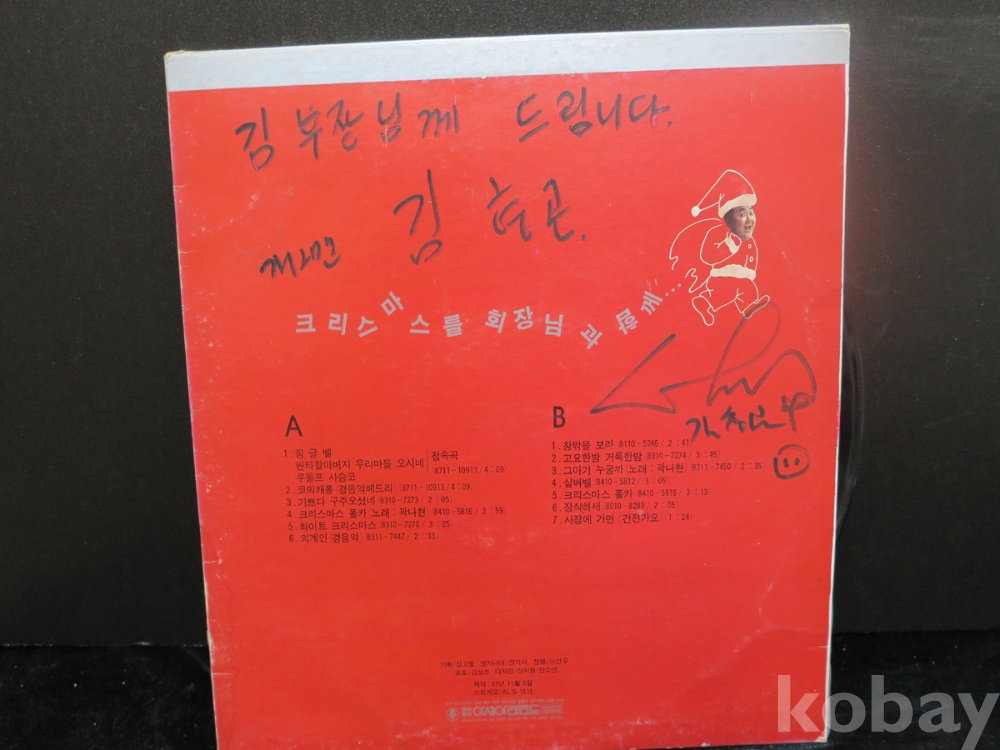 김 부장님께 드립니다.
김 형곤.
크리스마스를 회장님과 함께...
A
1. 징글벨
싼타할아버지 우리마을 오시네
루돌프 사슴코
접속곡
(8711-10913/4:09)
2. 코믹캐롤 경음악메드리 (8711-10913/4:09)
3. 기쁘다 구주오셨네 (8310-7273/2:05)
4. 크리스마스 폴카 (노래:곽나현) (8410-5816/2:59)
5. 화이트 크리스마스 (8310-7270/3:25)
6. 외계인 (경음악) (8311-7447/2:33)
B
1. 창밖을 보라 (8110-5246/2:41)
2. 고요한밤 거룩한밤 (8310-7274/3:45)
3. 그아기 누굴까 (노래:곽나현) (8311-7450/2:35)
4. 실버벨 (8410-5812/3:05)
5. 크리스마스 폴카 (8410-5816/3:13)
6. 장식하세 (8010-8289/2:05)
7. 시장에 가면 (건전가요) (1:24)
제작:87년 11월 5일
스트레오/ALS-1515
kobay